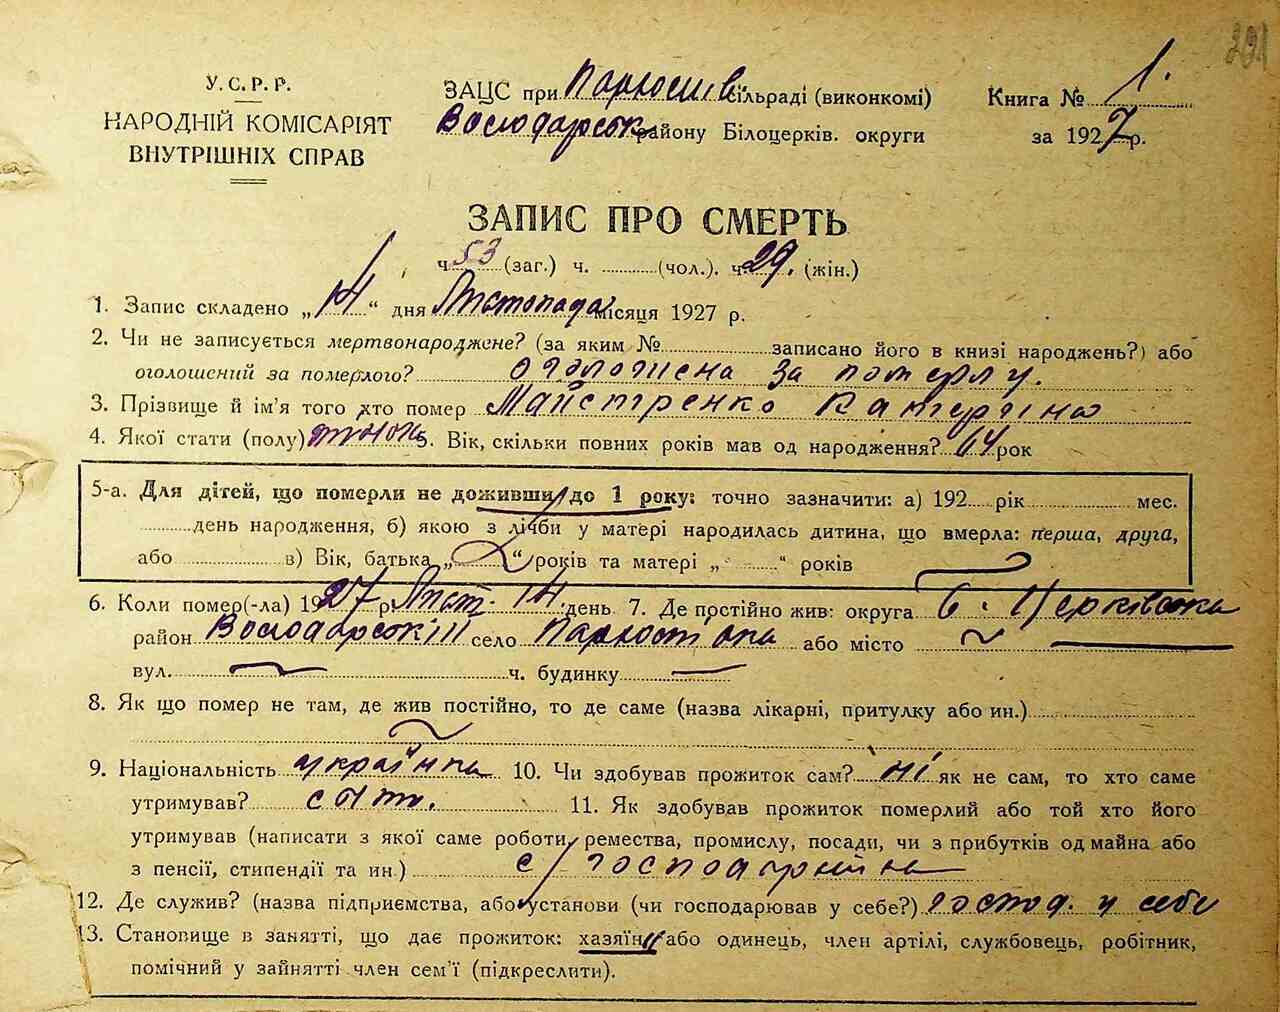 291
У.С.Р.Р.
НАРОДНІЙ КОМІСАРІЯТ
ВНУТРІШНІХ СПРАВ
ЗАЦС при Пархомів. сільраді (виконкомі)
Володарськ району Білоцерків. округи
Книга № 1.
за 1927 р.
ЗАПИС ПРО СМЕРТЬ
ч. 53 (заг.) ч. (чол.). ч. 29. (жін.)
1. Запис складено „14“ дня Листопада місяця 1927 р.
2. Чи не записується мертвонароджене? (за яким № записано його в книзі народжень?) або
оголошений за померлого? оголошена за померлу.
3. Прізвище й ім'я того хто помер Майстренко Катерина
4. Якої стати (полу) жіноч. 5. Вік, скільки повних років мав од народження? 64 рок
5-а. Для дітей, що померли не доживши до 1 року: точно зазначити: а) 192 рік мес.
день народження, б) якою з лічби у матері народилась дитина, що вмерла: перша, друга,
або в) Вік, батька „ “ років та матері „ “ років
6. Коли помер(-ла) 1927 р. Лист. 14 день 7. Де постійно жив: округа Б. Церківська
район Володарський село Пархомівка або місто
вул. ч. будинку
8. Як що помер не там, де жив постійно, то де саме (назва лікарні, притулку або ин.)
9. Національність українка 10. Чи здобував прожиток сам? ні як не сам, то хто саме
утримував? 11. Як здобував прожиток померлий або той хто його
утримував (написати з якої саме роботи, ремества, промислу, посади, чи з прибутків од майна або
з пенсії, стипендії та ин.) с/господаркою
12. Де служив? (назва підприємства, або установи (чи господарював у себе?) господ. у себе
13. Становище в занятті, що дає прожиток: хазяїн або одинець, член артілі, службовець, робітник,
помічний у зайнятті член сем'ї (підкреслити).